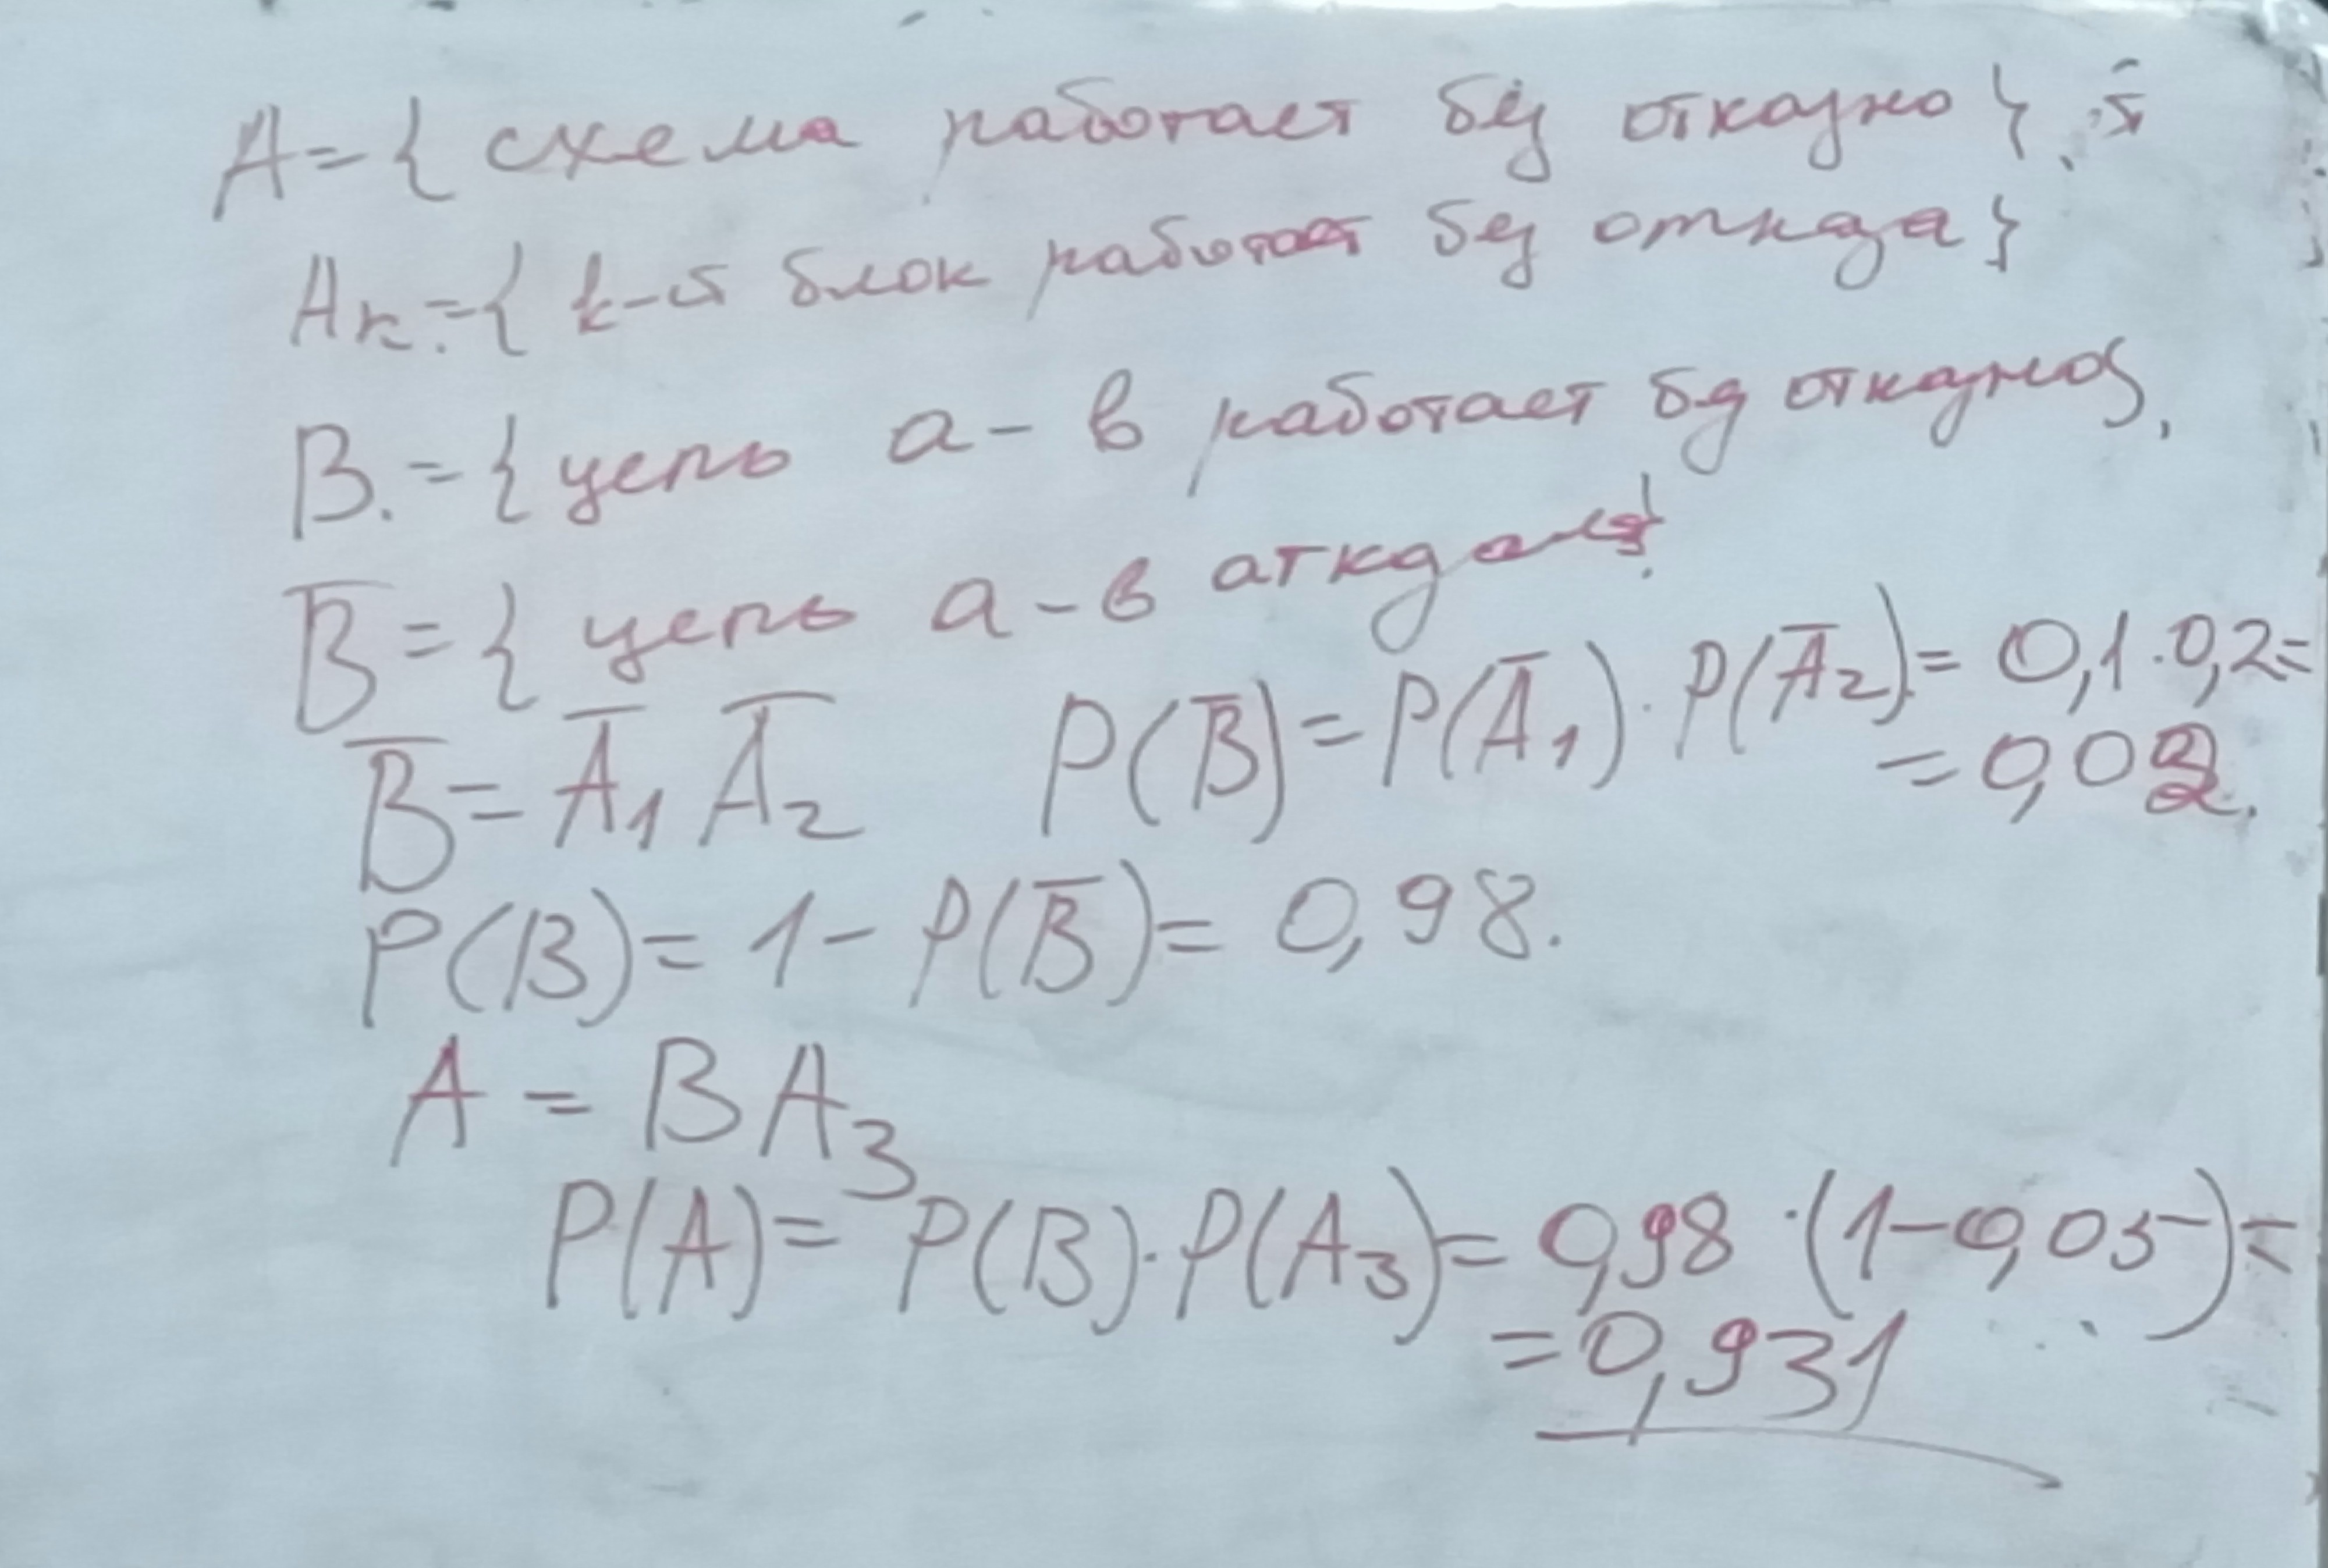 A = { схема работает без отказно }.
Aк = { k-й блок работает без отказа }
B = { цепь a - в работает без отказно },
B̅ = { цепь a - в отказала }
B̅ = A̅₁ A̅₂ P(B̅) = P(A̅₁) · P(A̅₂) = 0,1 · 0,2 =
= 0,02.
P(B) = 1 - P(B̅) = 0,98.
A = B A₃
P(A) = P(B) · P(A₃) = 0,98 · (1 - 0,05) =
= 0,931